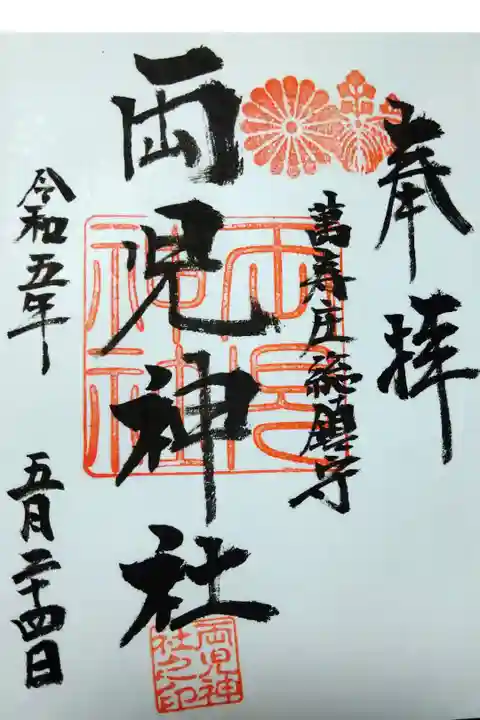 奉拝
萬寿庄総鎮守
両児神社
令和五年
五月二十四日
両児神社
両児神社之印